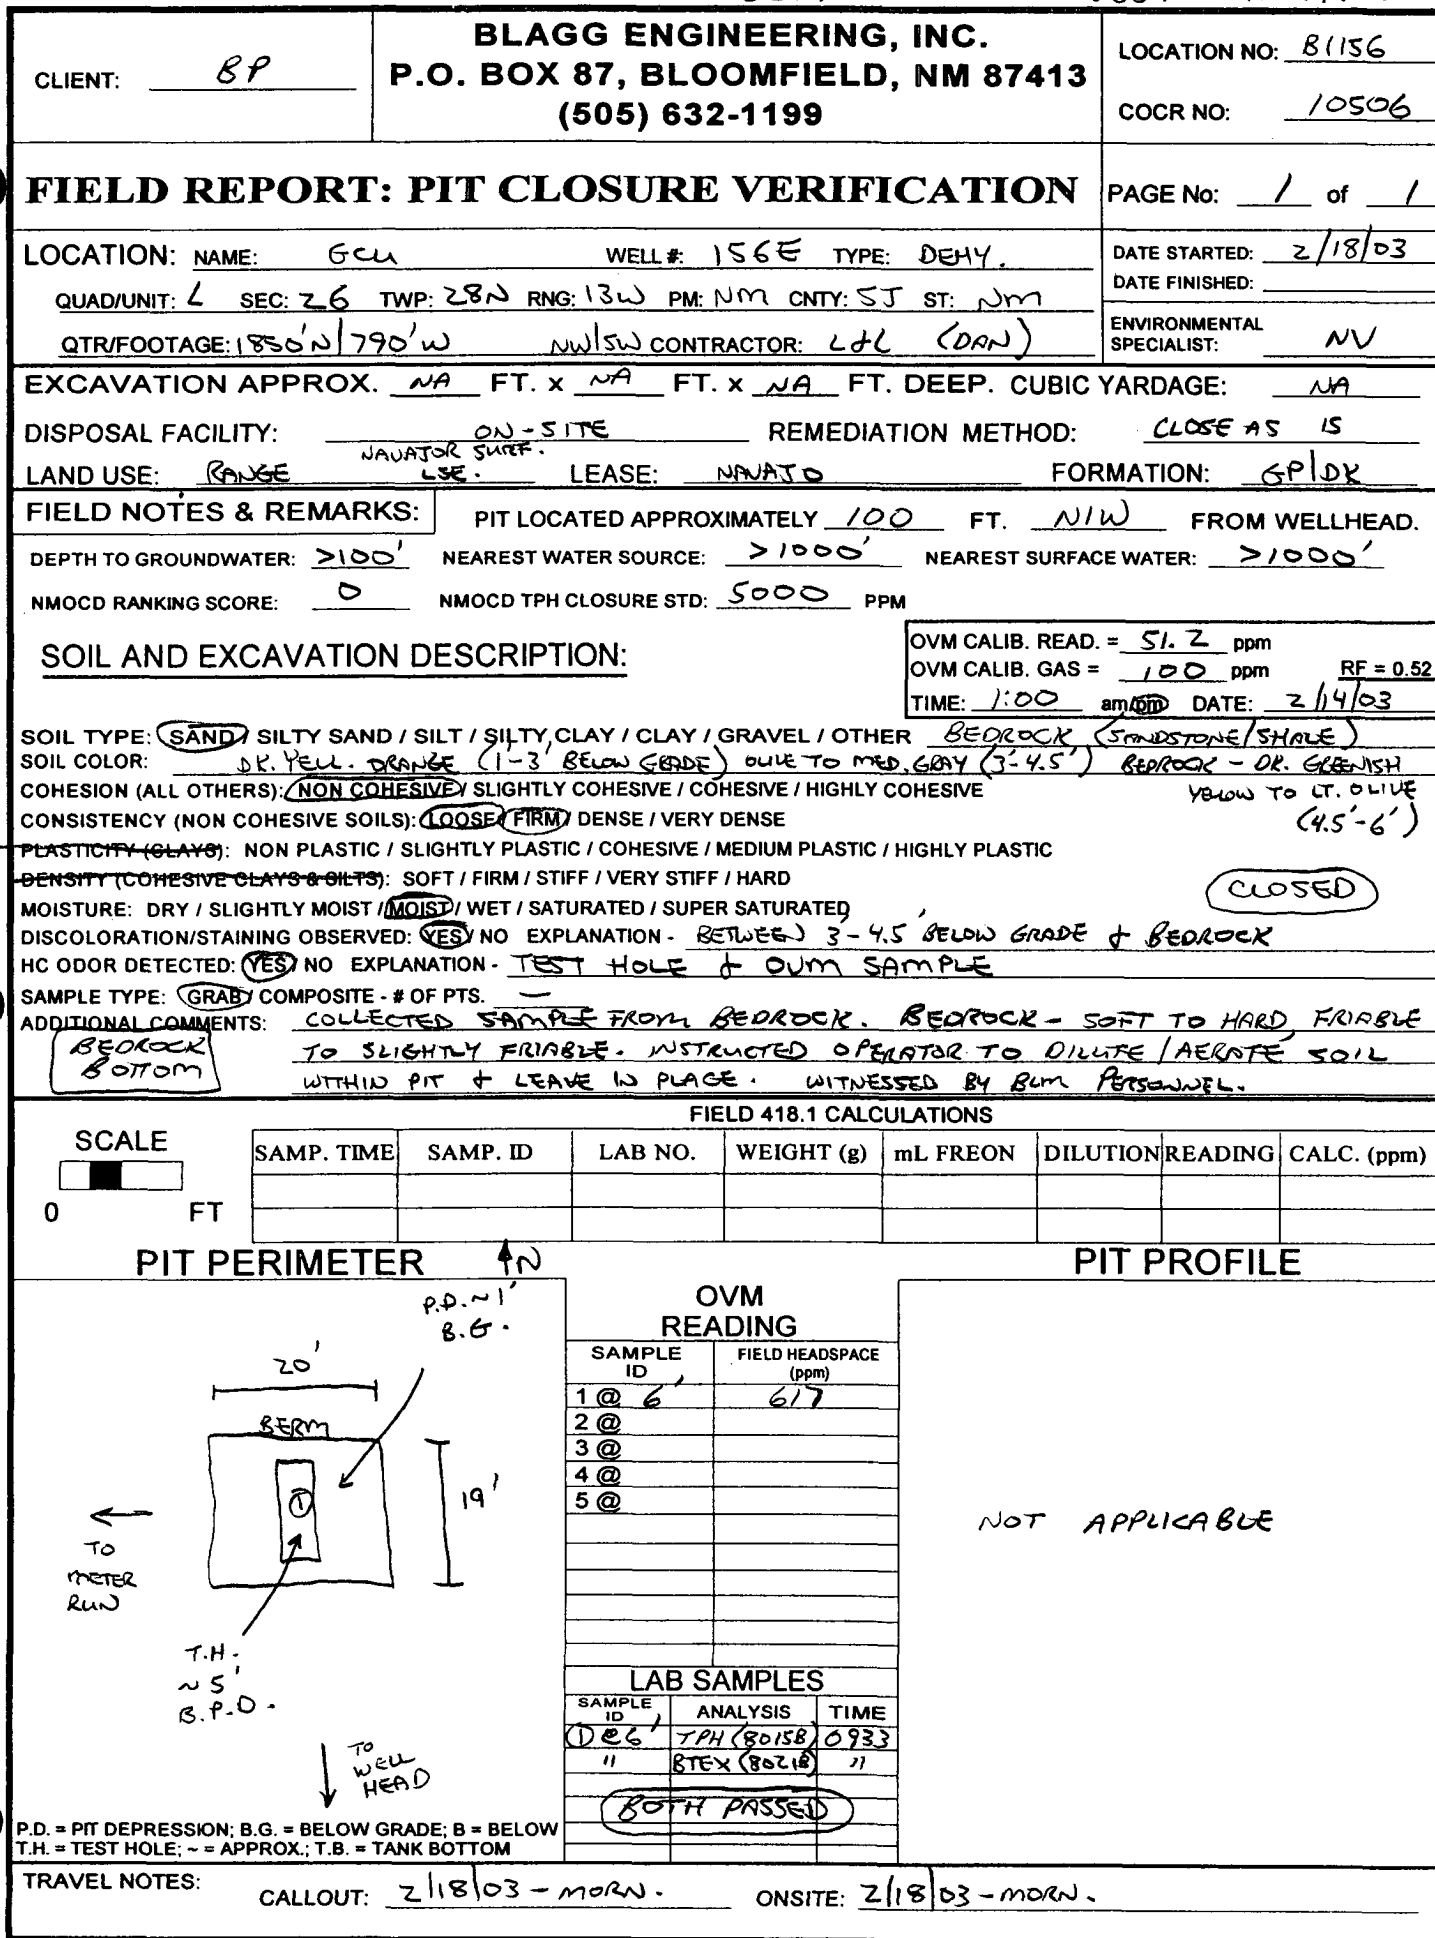 CLIENT: BP
BLAGG ENGINEERING, INC.
P.O. BOX 87, BLOOMFIELD, NM 87413
(505) 632-1199
LOCATION NO: B1156
COCR NO: 10506
FIELD REPORT: PIT CLOSURE VERIFICATION
PAGE No: 1 of 1
LOCATION: NAME: GCU WELL #: 156E TYPE: DEHY.
QUAD/UNIT: L SEC: 26 TWP: 28N RNG: 13W PM: NM CNTY: SJ ST: NM
QTR/FOOTAGE: 1850'N/790'W NW/SW CONTRACTOR: L&L (DAN)
DATE STARTED: 2/18/03
DATE FINISHED:
ENVIRONMENTAL SPECIALIST: NV
EXCAVATION APPROX. NA FT. x NA FT. x NA FT. DEEP. CUBIC YARDAGE: NA
DISPOSAL FACILITY: ON-SITE REMEDIATION METHOD: CLOSE AS IS
LAND USE: RANGE NAVAJOR SURF. LSE. LEASE: NAVAJO FORMATION: GP/DK
FIELD NOTES & REMARKS: PIT LOCATED APPROXIMATELY 100 FT. N/W FROM WELLHEAD.
DEPTH TO GROUNDWATER: >100' NEAREST WATER SOURCE: >1000' NEAREST SURFACE WATER: >1000'
NMOCD RANKING SCORE: 0 NMOCD TPH CLOSURE STD: 5000 PPM
SOIL AND EXCAVATION DESCRIPTION:
OVM CALIB. READ. = 51.2 ppm
OVM CALIB. GAS = 100 ppm RF = 0.52
TIME: 1:00 am/pm DATE: 2/14/03
SOIL TYPE: SAND / SILTY SAND / SILT / SILTY CLAY / CLAY / GRAVEL / OTHER BEDROCK (SANDSTONE/SHALE)
SOIL COLOR: DK. YELL. ORANGE (1-3' BELOW GRADE) OLIVE TO MED. GRAY (3'-4.5') BEDROCK - DK. GREENISH
YELLOW TO LT. OLIVE
(4.5'-6')
COHESION (ALL OTHERS): NON COHESIVE / SLIGHTLY COHESIVE / COHESIVE / HIGHLY COHESIVE
CONSISTENCY (NON COHESIVE SOILS): LOOSE / FIRM / DENSE / VERY DENSE
PLASTICITY (CLAYS): NON PLASTIC / SLIGHTLY PLASTIC / COHESIVE / MEDIUM PLASTIC / HIGHLY PLASTIC
DENSITY (COHESIVE CLAYS & SILTS): SOFT / FIRM / STIFF / VERY STIFF / HARD
CLOSED
MOISTURE: DRY / SLIGHTLY MOIST / MOIST / WET / SATURATED / SUPER SATURATED
DISCOLORATION/STAINING OBSERVED: YES / NO EXPLANATION - BETWEEN 3'-4.5' BELOW GRADE & BEDROCK
HC ODOR DETECTED: YES / NO EXPLANATION - TEST HOLE & OVM SAMPLE
SAMPLE TYPE: GRAB / COMPOSITE - # OF PTS. —
ADDITIONAL COMMENTS: COLLECTED SAMPLE FROM BEDROCK. BEDROCK - SOFT TO HARD, FRIABLE
TO SLIGHTLY FRIABLE. INSTRUCTED OPERATOR TO DILUTE/AERATE SOIL
WITHIN PIT & LEAVE IN PLACE. WITNESSED BY BLM PERSONNEL.
BEDROCK
BOTTOM
FIELD 418.1 CALCULATIONS
SCALE
0 FT
SAMP. TIME SAMP. ID LAB NO. WEIGHT (g) mL FREON DILUTION READING CALC. (ppm)
PIT PERIMETER N
P.D. ~ 1'
B.G.
20'
BERM
19'
1
TO
METER
RUN
T.H.
~ 5'
B.P.D.
TO
WELL
HEAD
P.D. = PIT DEPRESSION; B.G. = BELOW GRADE; B = BELOW
T.H. = TEST HOLE; ~ = APPROX.; T.B. = TANK BOTTOM
OVM
READING
SAMPLE ID FIELD HEADSPACE (ppm)
1 @ 6' 617
2 @
3 @
4 @
5 @
LAB SAMPLES
SAMPLE ID ANALYSIS TIME
1 @ 6' TPH (8015B) 0933
" BTEX (8021B) "
BOTH PASSED
PIT PROFILE
NOT APPLICABLE
TRAVEL NOTES: CALLOUT: 2/18/03 - MORN. ONSITE: 2/18/03 - MORN.